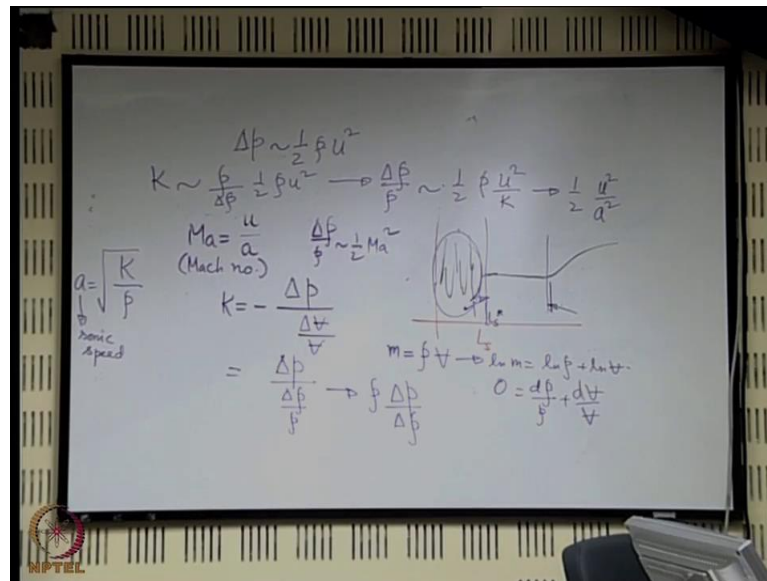 Δp ~ 1/2 ρu²
K ~ ρ/Δρ 1/2 ρu² → Δρ/ρ ~ 1/2 ρ u²/K → 1/2 u²/a²
Ma = u/a
(Mach no.)
Δρ/ρ ~ 1/2 Ma²
a = √(K/ρ)
sonic
speed
K = - Δp/(ΔV/V)
= Δp/(Δρ/ρ) → ρ Δp/Δρ
m = ρV → ln m = lnρ + lnV
0 = dρ/ρ + dV/V
NPTEL